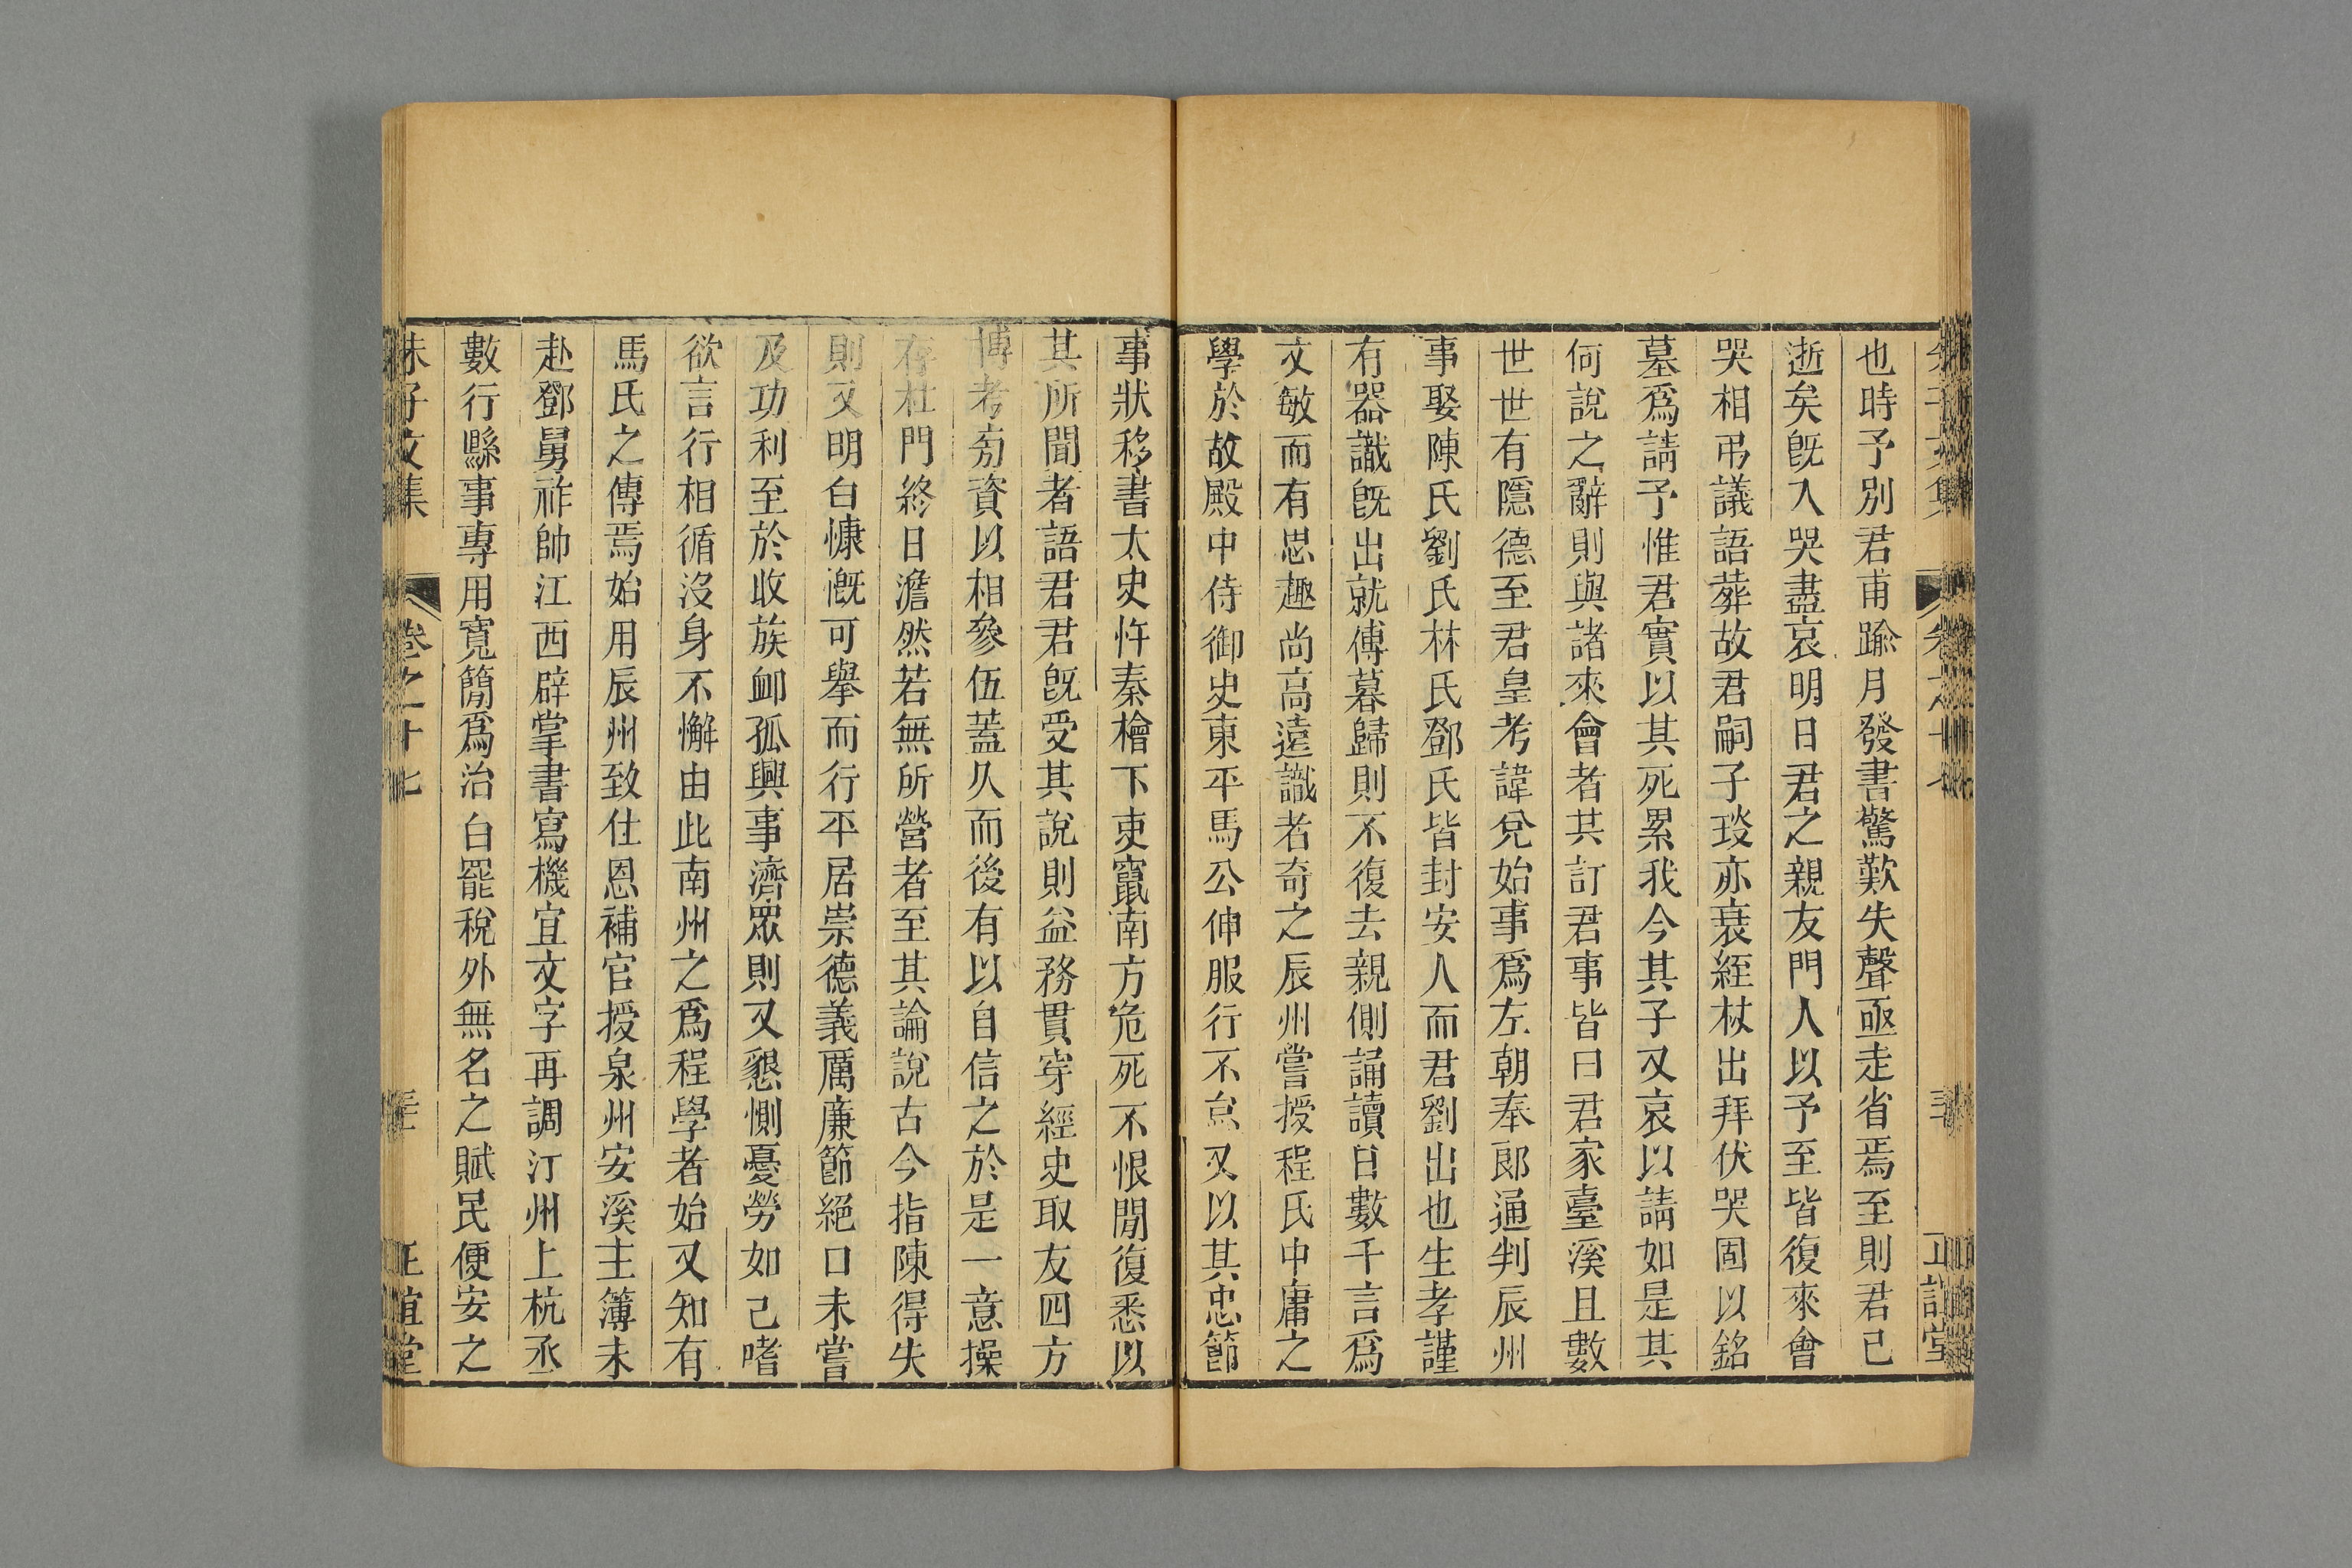 也時予別君甫踰月發書驚歎失聲亟走省焉至則君已
逝矣旣入哭盡哀明日君之親友門人以予至皆復來會
哭相弔議語葬故君嗣子琰亦衰絰杖出拜伏哭固以銘
墓爲請予惟君實以其死累我今其子又哀以請如是其
何說之辭則與諸來會者共訂君事皆曰君家臺溪且數
世世有隱德至君皇考諱兌始事爲左朝奉郎通判辰州
事娶陳氏劉氏林氏鄧氏皆封安人而君劉出也生孝謹
有器識旣出就傅暮歸則不復去親側誦讀日數千言爲
文敏而有思趣尚高遠識者奇之辰州嘗授程氏中庸之
學於故殿中侍御史東平馬公伸服行不怠又以其忠節
事狀移書太史忤秦檜下吏竄南方危死不恨閒復悉以
其所聞者語君君旣受其說則益務貫穿經史取友四方
博考旁資以相參伍蓋久而後有以自信之於是一意操
存杜門終日澹然若無所營者至其論說古今指陳得失
則又明白慷慨可舉而行平居崇德義厲廉節絕口未嘗
及功利至於收族卹孤興事濟眾則又懇惻憂勞如己嗜
欲言行相循沒身不懈由此南州之爲程學者始又知有
馬氏之傳焉始用辰州致仕恩補官授泉州安溪主簿未
赴鄧舅祚帥江西辟掌書寫機宜文字再調汀州上杭丞
數行縣事專用寬簡爲治白罷稅外無名之賦民便安之
朱子文集
卷之十七
正誼堂